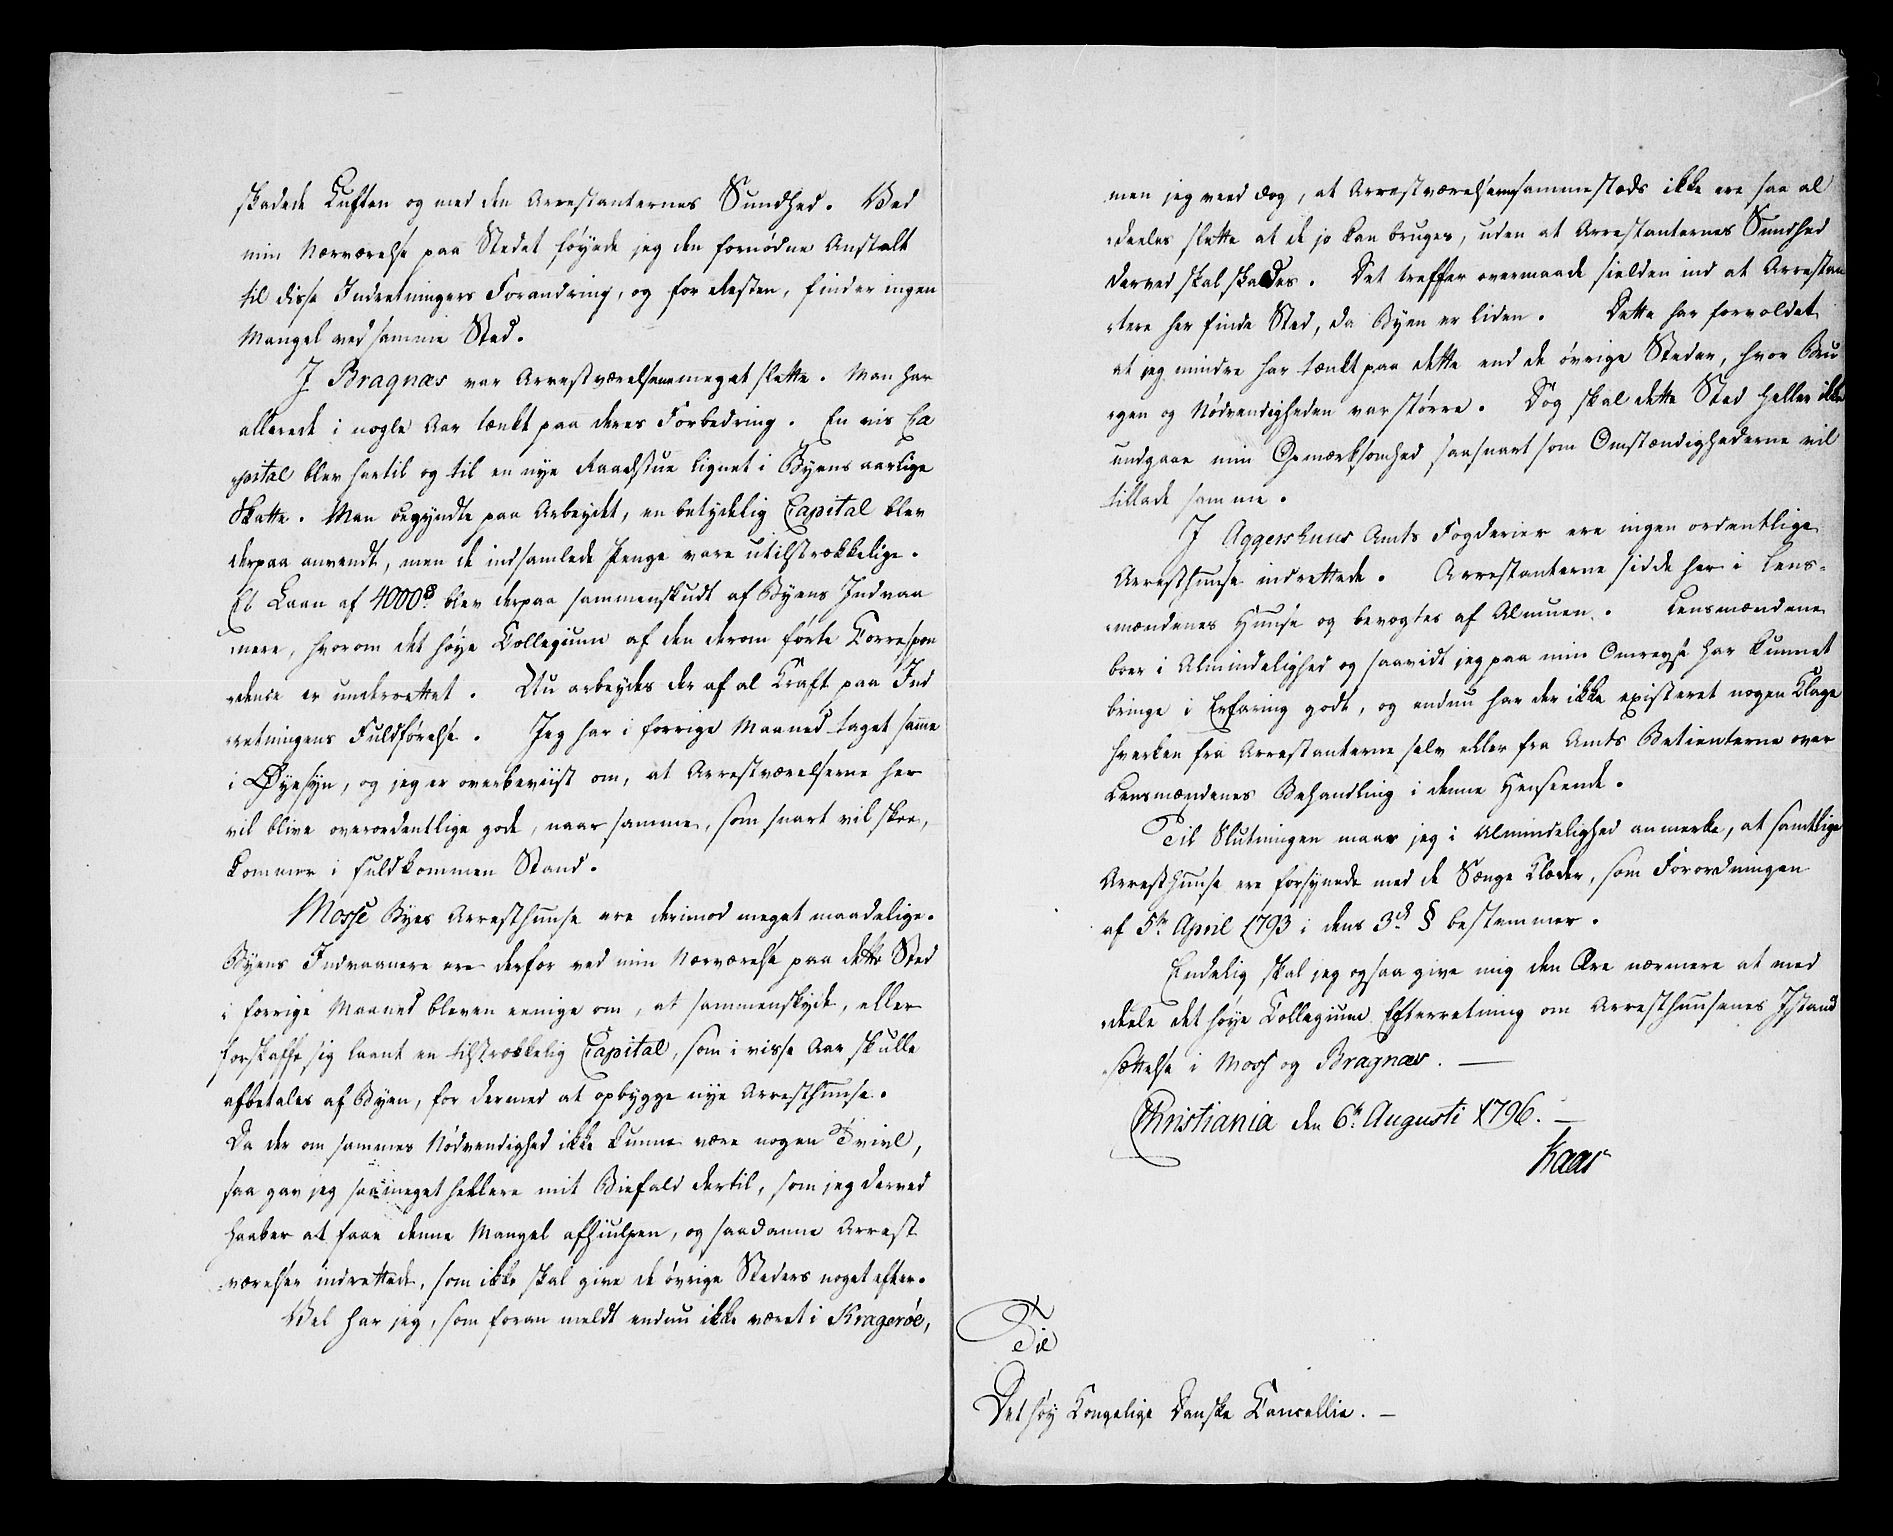 skadede Luften og med den Arrestanternes Sundhed. Ved
min Nærværelse paa Stedet føyede jeg den fornødne Anstalt
til disse Indretningers Forandring, og for resten, finder ingen
Mangel ved samme Sted.
I Bragnæs var Arrestværelserne meget slette. Man har
allerede i nogle Aar tænkt paa deres Forbedring. En vis Ca
pital blev hertil og til en nye Raadstue lignet i Byens aarlige
Skatte. Man begyndte paa Arbeydet, en betydelig Capital blev
derpaa anvendt, men de indsamlede Penge vare utilstrækkelige.
Et Laan af 4000 blev derpaa sammenskudt af Byens Indvaa
nere, hvorom det høye Collegium af den derom førte Correspon
dence er underrettet. Nu arbeydes der af al Kraft paa Ind
retningens Fuldførelse. Jeg har i forrige Maaned taget samme
i Øyesyn, og jeg er overbeviist om, at Arrestværelserne her
vil blive overordentlige gode, naar samme, som snart vil skee,
kommer i fuldkommen Stand.
Mosse Byes Arresthuuse ere derimod meget maadelige.
Byens Indvaanere ere derfor ved min Nærværelse paa dette Sted
i forrige Maaned bleven eenige om, at sammenskyde, eller
forskaffe sig laant en tilstrækkelig Capital, som i visse Aar skulle
afbetales af Byen, for dermed at opbygge nye Arresthuuse.
Da der om sammes Nødvendighed ikke kunne være nogen Tvivl,
saa gav jeg saameget hellere mit Biefald dertil, som jeg derved
haaber at faae denne Mangel afhiulpen, og saadanne Arrest
værelser indrettede, som ikke skal give de øvrige Steders noget efter.
Vel har jeg, som foran meldt endnu ikke været i Kragerøe,
men jeg veed dog, at Arrestværelserne sammesteds ikke ere saa al
deeles slette at de jo kan bruges, uden at Arrestanternes Sundhed
derved skal skades. Det treffer overmaade sielden ind at Arrestan
tere her finde Sted, da Byen er liden. Dette har forvoldet
at jeg mindre har tænkt paa dette end de øvrige Steder, hvor Bru
gen og Nødvendigheden var større. Dog skal dette Sted heller ikke
undgaae min Opmærksomhed, saasnart som Omstændighederne vil
tillade samme.
I Aggershuus Amts Fogderier ere ingen ordentlige
Arresthuuse indrettede. Arrestanterne sidde her i Lens-
mændenes Huuse og bevogtes af Almuen. Lensmændene
boer i Almindelighed og saavidt jeg paa min Omreyse har kunnet
bringe i Erfaring godt, og endnu har der ikke existeret nogen Klage
hverken fra Arrestanterne selv eller fra Amts Betienterne over
Lensmændenes Behandling i denne Henseende.
Til Slutningen maae jeg i Almindelighed anmerke, at samtlige
Arresthuuse ere forsynede med de Senge Klæder, som Forordningen
af 5te April 1793 i dens 3d § bestemmer.
Endelig skal jeg ogsaa give mig den Ære nærmere at med
deele det høye Collegium Efterretning om Arresthuusenes Istand
sættelse i Moss og Bragnæs. —
Christiania den 6te Augusti 1796. —
Kaas
Til
Det høy Kongelige Danske Cancellie. —